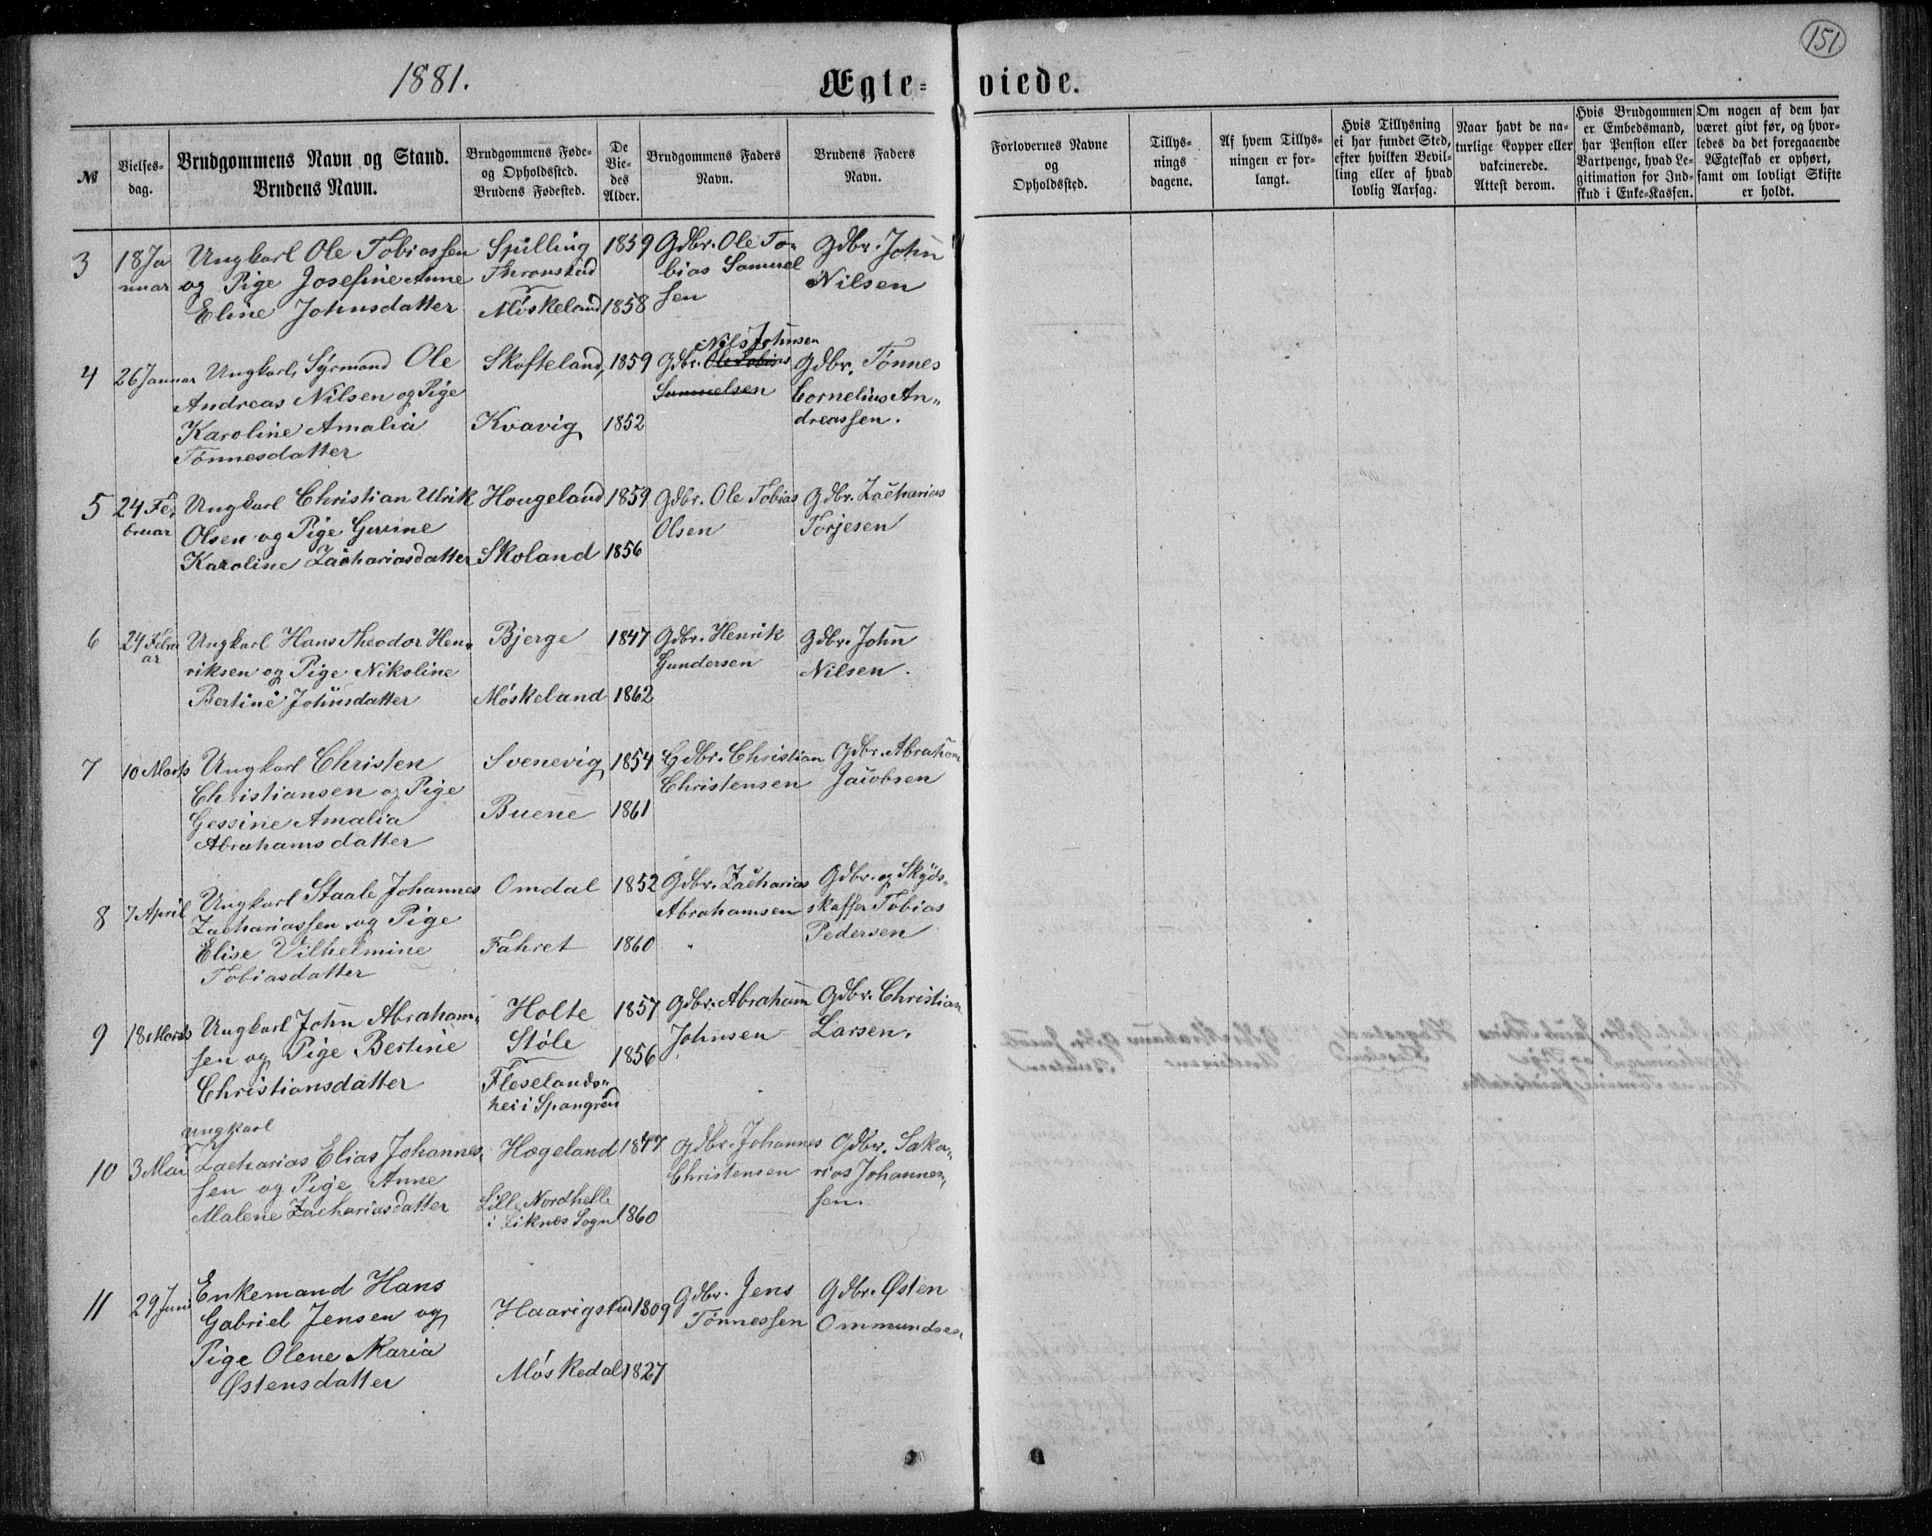 151
1881.
Ægte- viede.
№
Vielses-
dag.
Brudgommens Navn og Stand.
Brudens Navn.
Brudgommens Føde-
og Opholdssted.
Brudens Fødested.
De
Vie-
des
Alder.
Brudgommens Faders
Navn.
Brudens Faders
Navn.
Forlovernes Navne
og
Opholdssted.
Tillys-
nings
dagene.
Af hvem Tillys-
ningen er for-
langt.
Hvis Tillysning
ei har fundet Sted,
efter hvilken Bevil-
ling eller af hvad
lovlig Aarsag.
Naar havt de na-
turlige Kopper eller
vakcinerede.
Attest derom.
Hvis Brudgommen
er Embedsmand,
har Pension eller
Vartpenge, hvad Le-
gitimation for Ind-
skud i Enke-Kassen.
Om nogen af dem har
været givt før, og hvor-
ledes da det foregaaende
Ægteskab er ophørt,
samt om lovligt Skifte
er holdt.
3
18 Ja
nuar
Ungkarl Ole Tobiassen
og Pige Josefine Anne
Eline Johnsdatter
Spilling
Thronstad
Møskeland
1859
1858
Gdbr. Ole To-
bias Samuel
sen
Gdbr. John
Nilsen
4
26 Januar
Ungkarl, Syrmand Ole
Andreas Nilsen og Pige
Karoline Amalia
Tønnesdatter
Skofteland,
Kvavig
1859
1852
Nils Johnsen
Gdbr. Ole Tobias
Samuelsen
Gdbr. Tønnes
Cornelius An-
dreassen.
5
24 Fe-
bruar
Ungkarl Christian Ulrik
Olsen og Pige Gurine
Karoline Zachariasdatter
Hougeland
Skoland
1859
1856
Gdbr. Ole Tobias
Olsen
Gdbr. Zacharias
Torjesen
6
24 Febru
ar
Ungkarl Hans Theodor Hen-
riksen og Pige Nikoline
Bertine Johnsdatter
Bjerge
Møskeland
1847
1862
Gdbr. Henrik
Gundersen
Gdbr. John
Nilsen.
7
10 Marts
Ungkarl Christen
Christiansen og Pige
Gessine Amalia
Abrahamsdatter
Svenevig
Buene
1854
1861
Gdbr. Christian
Christensen
Gdbr. Abraham
Jacobsen
8
7 April
Ungkarl Staale Johannes
Zachariassen og Pige
Elise Vilhelmine
Tobiasdatter
Omdal
Fahret
1852
1860
Gdbr. Zacharias
Abrahamsen
Gdbr. og Skyds-
skaffer Tobias
Pedersen
9
18 Marts
Ungkarl John Abraham-
sen og Pige Bertine
Christiansdatter
Holte
Støle
Fleselands-
hei i Spangreid
1857
1856
Gdbr. Abraham
Johnsen
Gdbr. Christian
Larsen.
10
3 Mai
Ungkarl
Zacharias Elias Johannes-
sen og Pige Anne
Malene Zachariasdatter
Hægeland
Lille Nordhelle
i Liknes Sogn
1847
1860
Gdbr. Johannes
Christensen
Gdbr. Saka-
rias Johannes-
sen.
11
29 Juni
Enkemand Hans
Gabriel Jensen og
Pige Olene Maria
Østensdatter
Haarigstad
Møskedal
1809
1827
Gdbr. Jens
Tønnessen
Gdbr. Østen
Ommundsen